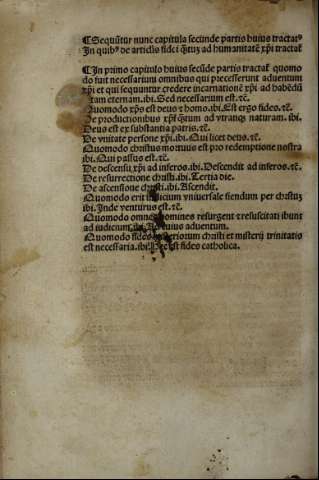 ¶Sequūtur nunc capitula secunde partis huius tractatꝰ
In quibꝰ de articłis fidei ꝙ̄tuȝ ad humanitatē xp̄i tractat̄
¶In primo capitulo huius secūde partis tractat̄ quomo
do fuit necessarium omnibus qui precesserunt aduentum
xp̄i et qui sequuntur credere incarnationē xp̄i ad habēdū
tam eternam.ibi.Sed necessarium est.⁊c̄.
Quomodo xp̄us est deus ⁊ homo.ibi.Est ergo fides.⁊c̄.
De productionibus xp̄i q̄ȝtum ad vtranqȝ naturam.ibi.
Deus est ex substantia patris.⁊c̄.
De vnitate persone xp̄i.ibi.Qui licet deus.⁊c̄.
Quomodo christus mortuus est pro redemptione nostra
ibi.Qui passus est.⁊c̄.
De descensu xp̄i ad inferos.ibi.Descendit ad inferos.⁊c̄.
De resurrectione christi.ibi.Tertia die.
De ascensione christi.ibi.Ascendit.
Quomodo erit iudicium vniuersale fiendum per christuȝ
ibi.Inde venturus est.⁊c̄.
Quomodo omnes homines resurgent ⁊ resuscitati ibunt
ad iudicium.ibi.Ad cuius aduentum.
Quomodo fides misteriorum christi et misterij trinitatis
est necessaria.ibi.Hec est fides catholica.